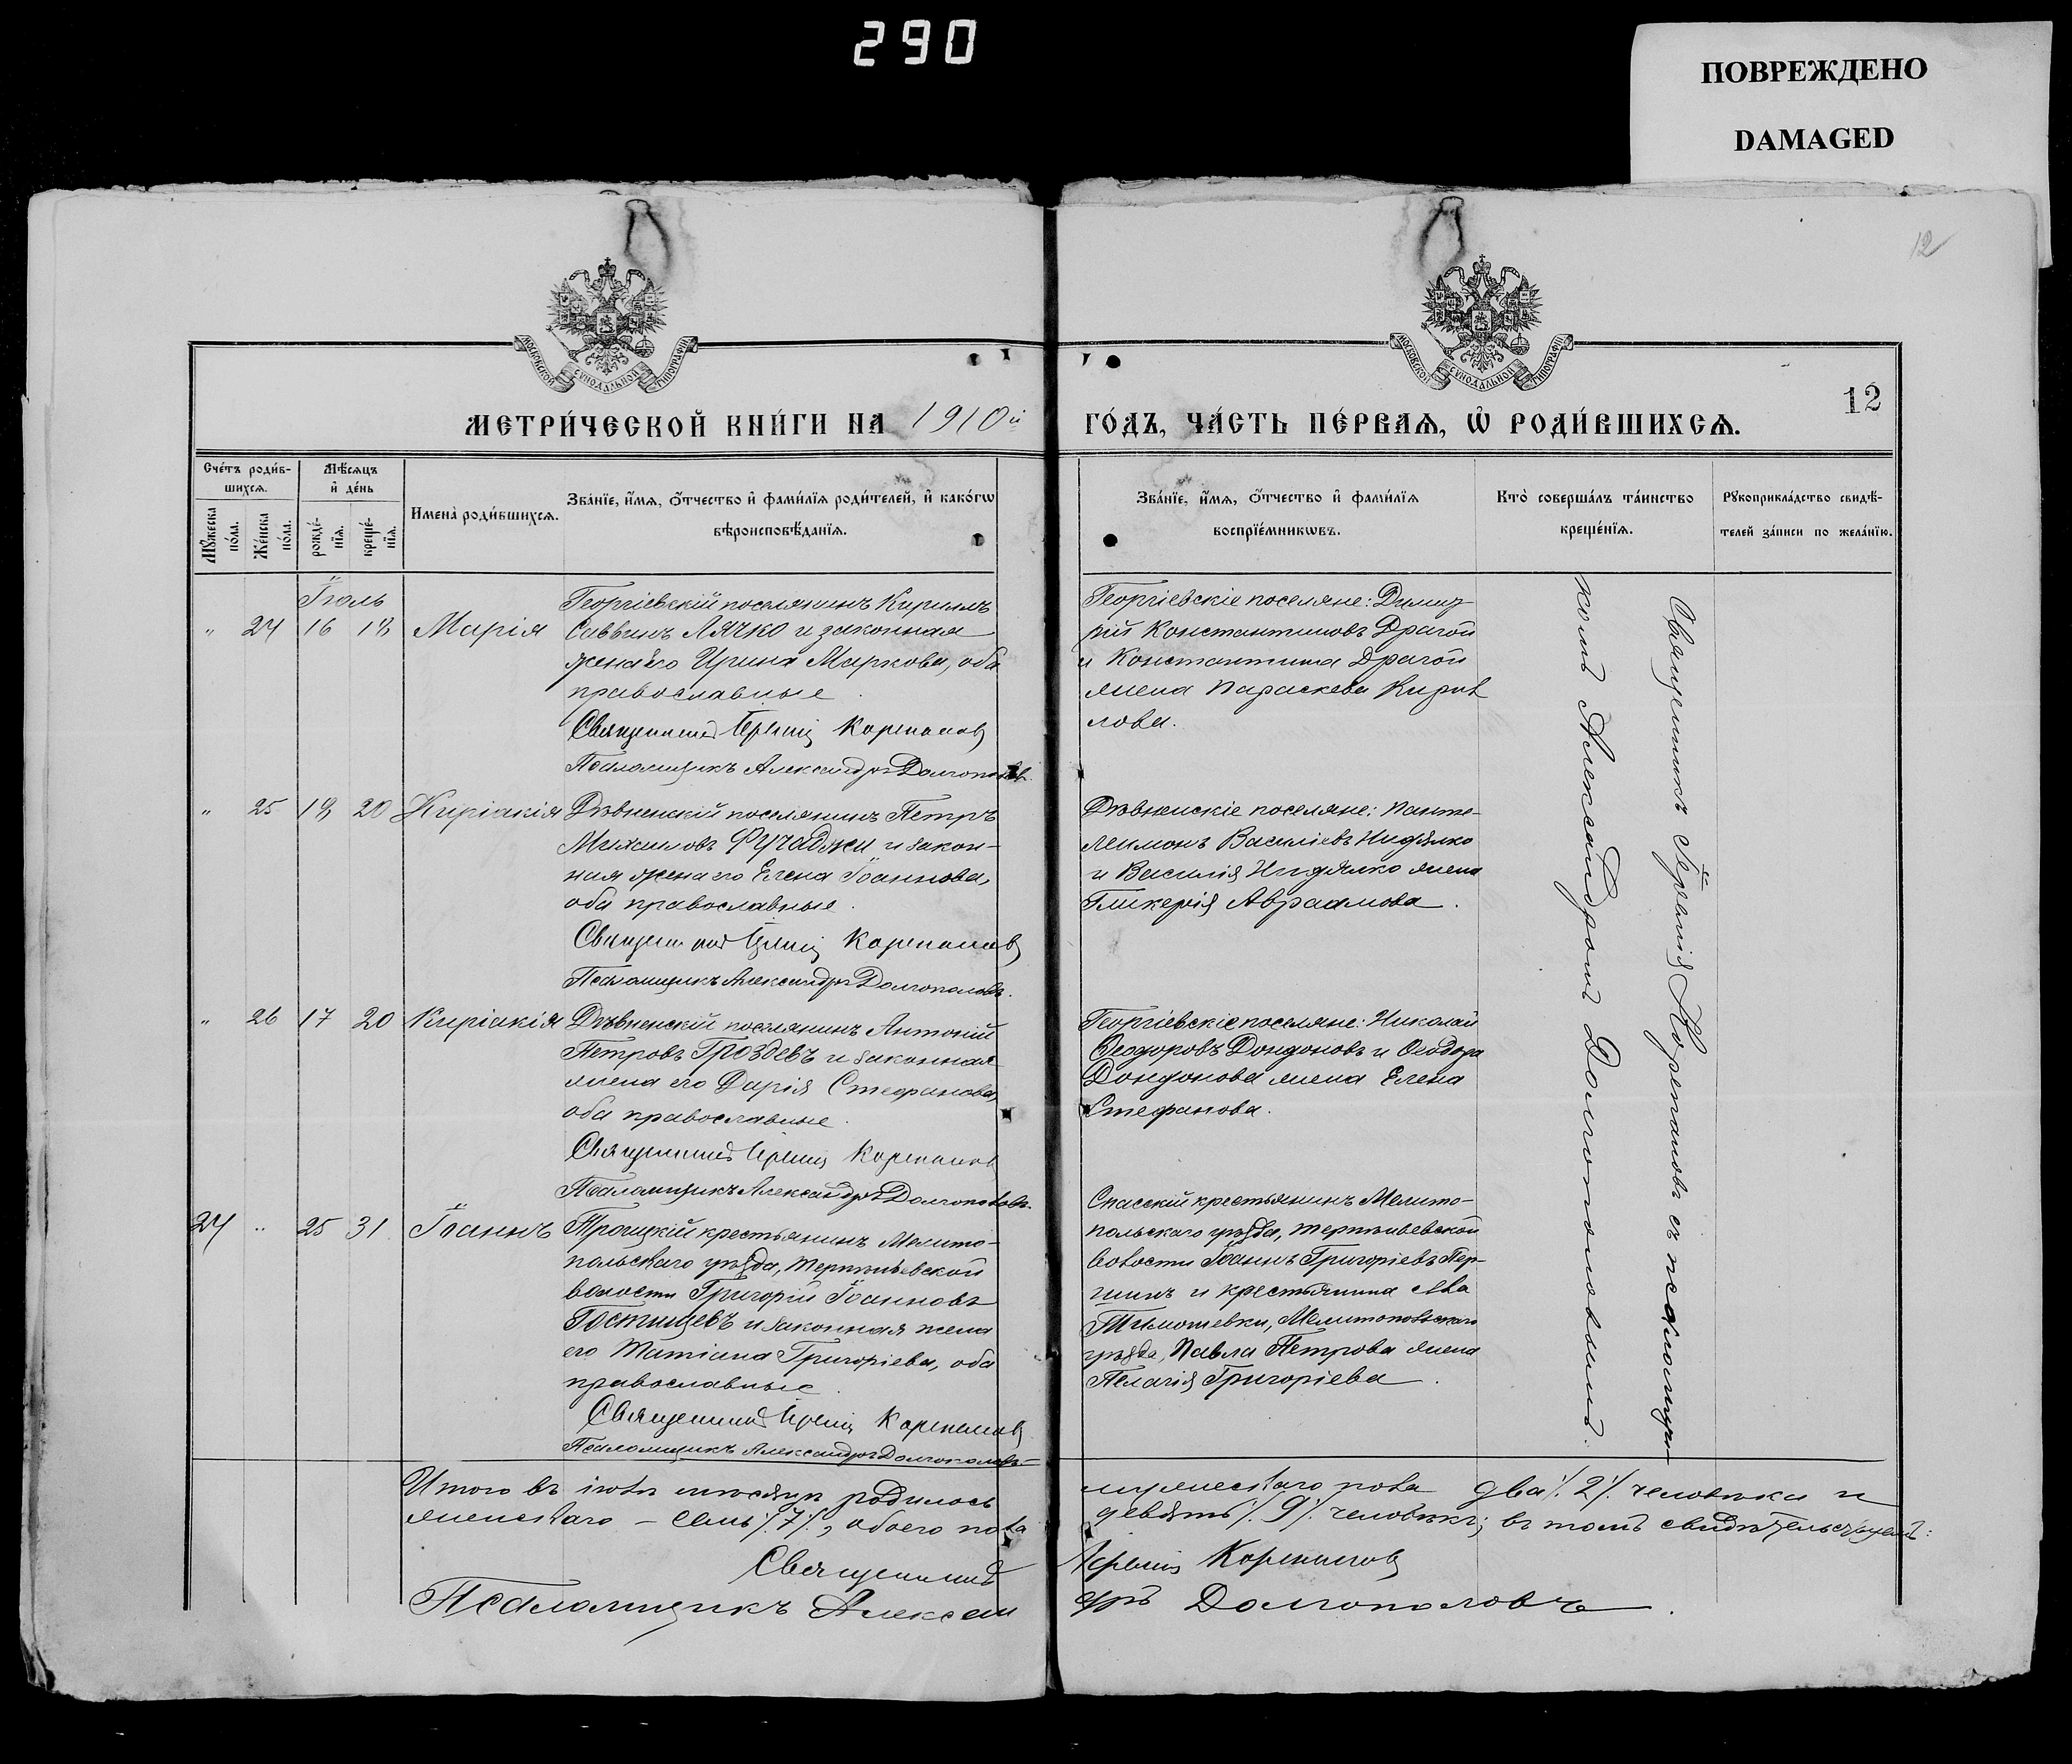 290
ПОВРЕЖДЕНО
DAMAGED
12
МОСКОВСКОЙ СѴНОДАЛЬНОЙ ТИПОГРАФІИ
МОСКОВСКОЙ СѴНОДАЛЬНОЙ ТИПОГРАФІИ
12
МЕТРИ́ЧЕСКОЙ КНИ́ГИ НА 1910й
ГО́ДЪ, ЧА́СТЬ ПЕ́РВАѦ, Ѡ РОДИ́ВШИХСѦ.
Сче́тъ роди́в-
шихсѧ.
Мꙋ́жеска по́ла.
Же́нска по́ла.
Мѣ́сѧцъ
и҆ де́нь
рожде́-
нїѧ.
креще́-
нїѧ.
Имена̀ роди́вшихсѧ.
Зва́нїе, и҆́мѧ, ѻ҆́тчество и҆ фами́лїѧ роди́телей, и҆ како́гѡ
вѣроисповѣ́данїѧ.
Зва́нїе, и҆́мѧ, ѻ҆́тчество и҆ фами́лїѧ
воспрїе́мникѡвъ.
Кто̀ соверша́лъ та́инство
креще́нїѧ.
Рꙋкоприкла́дство свидѣ́-
телей за́писи по жела́нїю.
Іюль
" 24 16 18 Марія
Георгіевскій поселянинъ Кириллъ
Саввинъ Лячко и законная
жена его Ирина Маркова, оба
православные.
Священникъ Іеремія Корепановъ
Псаломщикъ Александръ Долгополовъ.
Георгіевскіе поселяне: Димит-
рій Константиновъ Драгой
и Константина Драгой
жена Параскева Кирил
лова.
" 25 18 20 Киріакія
Дѣвненскій поселянинъ Петръ
Михаиловъ Фучаджи и закон-
ная жена его Елена Іоаннова,
оба православные.
Священникъ Іеремія Корепановъ
Псаломщикъ Александръ Долгополовъ.
Дѣвненскіе поселяне: Панте-
леимонъ Василіевъ Нидялко
и Василія Нидялко жена
Гликерія Авраамова.
" 26 17 20 Киріакія
Дѣвненскій поселянинъ Антоній
Петровъ Гроздевъ и законная
жена его Дарія Стефанова,
оба православные.
Священникъ Іеремія Корепановъ
Псаломщикъ Александръ Долгополовъ.
Георгіевскіе поселяне: Николай
Ѳеодоровъ Дондоновъ и Ѳеодора
Дондонова жена Елена
Стефанова.
24 " 25 31 Іоаннъ
Троицкій крестьянинъ Мелито-
польскаго уѣзда, Терпѣньевской
волости Григорій Іоанновъ
Гостищевъ и законная жена
его Татіана Григоріева, оба
православные.
Священникъ Іеремія Корепановъ
Псаломщикъ Александръ Долгополовъ
Спасскій крестьянинъ Мелито-
польскаго уѣзда, Терпѣньевской
волости Іоаннъ Григоріевъ Пер-
шинъ и крестьянина
Тимошевки, Мелитопольскаго
уѣзда, Павла Петрова жена
Пелагія Григоріева.
Священникъ Іеремія Корепановъ съ псаломщи-
комъ Александромъ Долгополовымъ.
Итого въ іюлѣ мѣсяцѣ родилось мужескаго пола два ٪ 2 ٪ человѣка и
женскаго – семь ٪ 7 ٪, обоего пола девять ٪ 9 ٪ человѣкъ; въ томъ свидѣтельствуемъ:
Священникъ Іеремія Корепановъ
Псаломщикъ Александръ Долгополовъ.